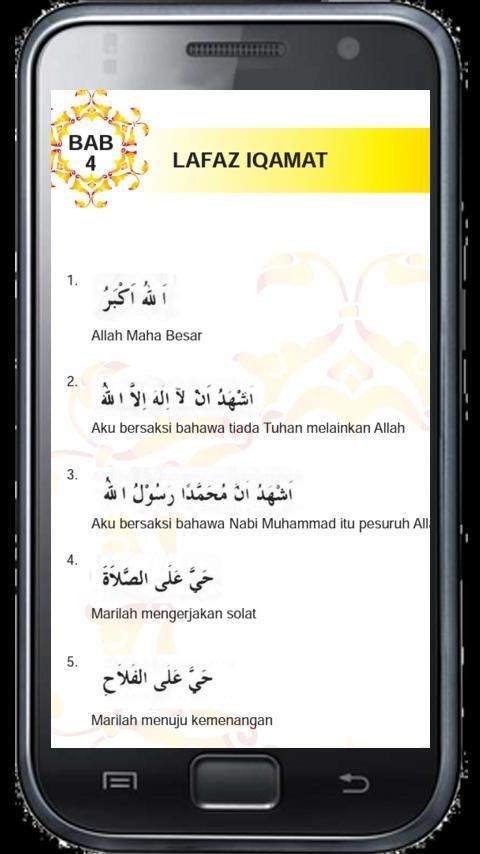 BAB
4
LAFAZ IQAMAT
1.
اَللهُ اَكْبَرُ
Allah Maha Besar
2.
اَشْهَدُ اَنْ لَآ اِلَهَ اِلاَّ اللهُ
Aku bersaksi bahawa tiada Tuhan melainkan Allah
3.
اَشْهَدُ اَنَّ مُحَمَّدًا رَسُوْلُ اللهُ
Aku bersaksi bahawa Nabi Muhammad itu pesuruh All
4.
حَيَّ عَلَى الصَّلَاةَ
Marilah mengerjakan solat
5.
حَيَّ عَلَى الفَلَاحِ
Marilah menuju kemenangan